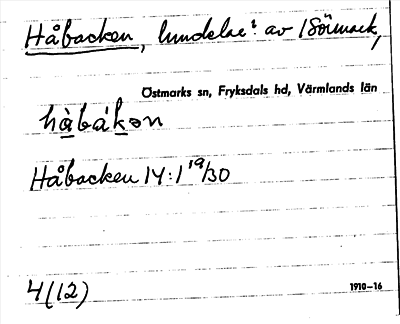 Håbacken, lundelar av 1 Sörmark,
Östmarks sn, Fryksdals hd, Värmlands län
hàbákən
Håbacken 14:1 19/30
4(12)
1910–16